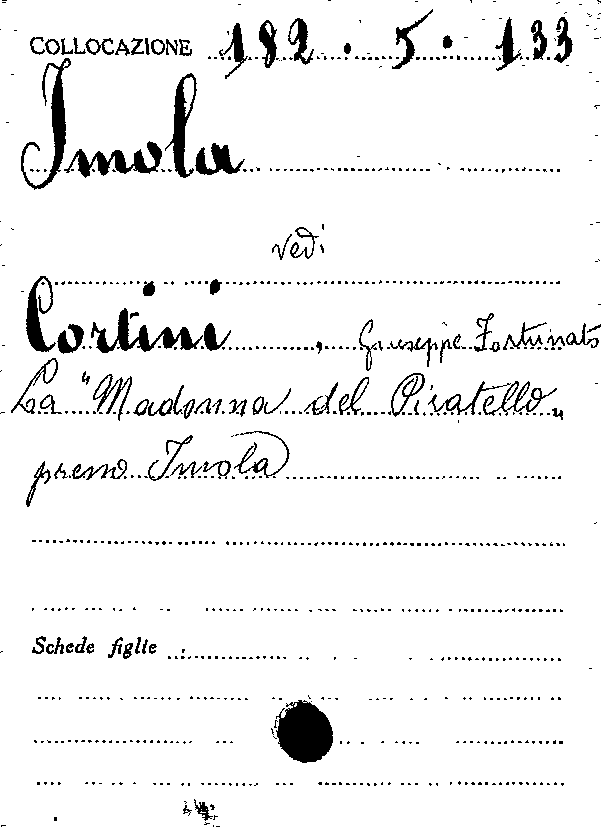 COLLOCAZIONE 182 . 5 . 133
Imola
vedi
Cortini , Giuseppe Fortunato
La "Madonna del Piratello„
presso Imola
Schede figlie